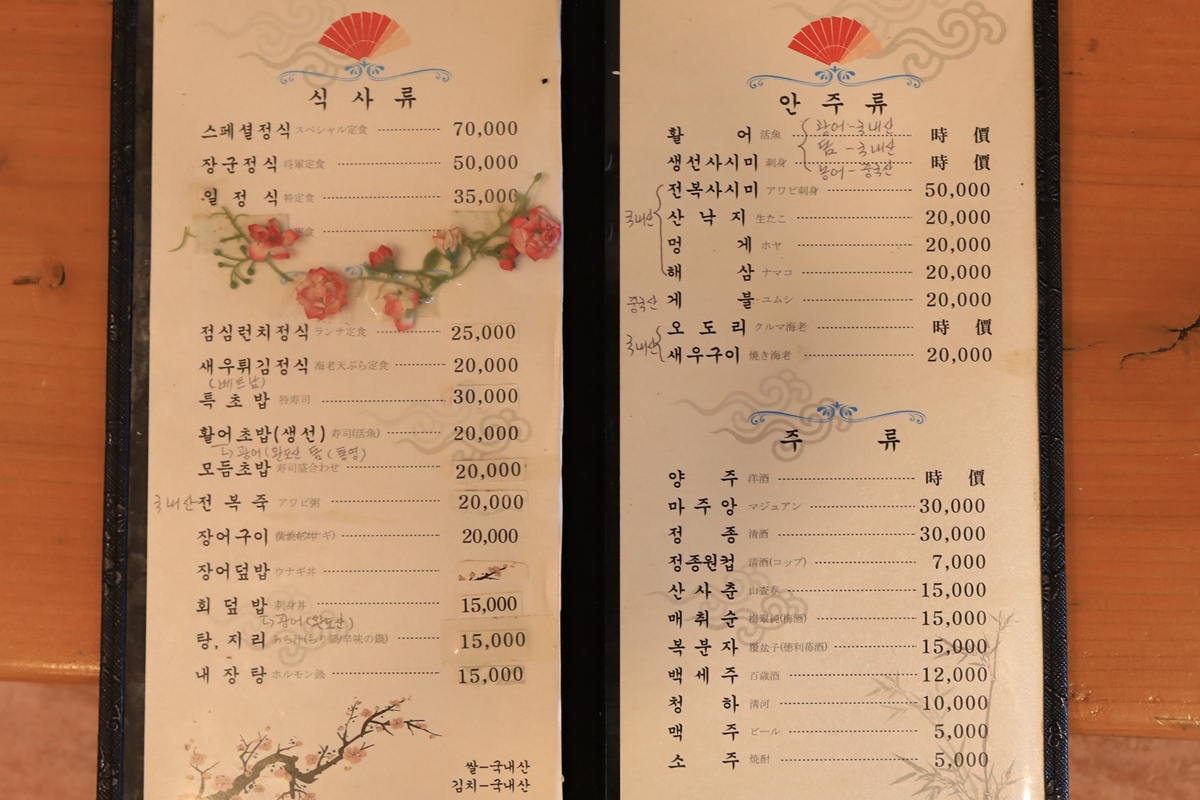 식 사 류
스페셜정식 スペシャル定食 70,000
장군정식 将軍定食 50,000
일 정 식 特定食 35,000
定食
점심런치정식 ランチ定食 25,000
새우튀김정식 海老天ぷら定食 20,000
(베트남)
특 초 밥 特寿司 30,000
활어초밥(생선) 寿司(活魚) 20,000
광어(완도산 돔(통영)
모듬초밥 寿司盛合わせ 20,000
국내산 전 복 죽 アワビ粥 20,000
장어구이 20,000
장어덮밥 ウナギ丼
회 덮 밥 刺身丼 15,000
광어(완도산)
탕, 지리 15,000
내 장 탕 ホルモン鍋 15,000
쌀-국내산
김치-국내산
안 주 류
활 어 活魚 時 價
광어-국내산
돔 -국내산
생선사시미 刺身 時 價
방어-중국산
전복사시미 アワビ刺身 50,000
국내산 산 낙 지 生たこ 20,000
멍 게 ホヤ 20,000
해 삼 ナマコ 20,000
중국산 게 불 ユムシ 20,000
오 도 리 クルマ海老 時 價
국내산 새우구이 焼き海老 20,000
주 류
양 주 洋酒 時 價
마 주 앙 マジュアン 30,000
정 종 清酒 30,000
정종원컵 清酒(コップ) 7,000
산 사 춘 山査春 15,000
매 취 순 15,000
복 분 자 覆盆子(徳利苺酒) 15,000
백 세 주 百歳酒 12,000
청 하 清河 10,000
맥 주 ビール 5,000
소 주 焼酎 5,000